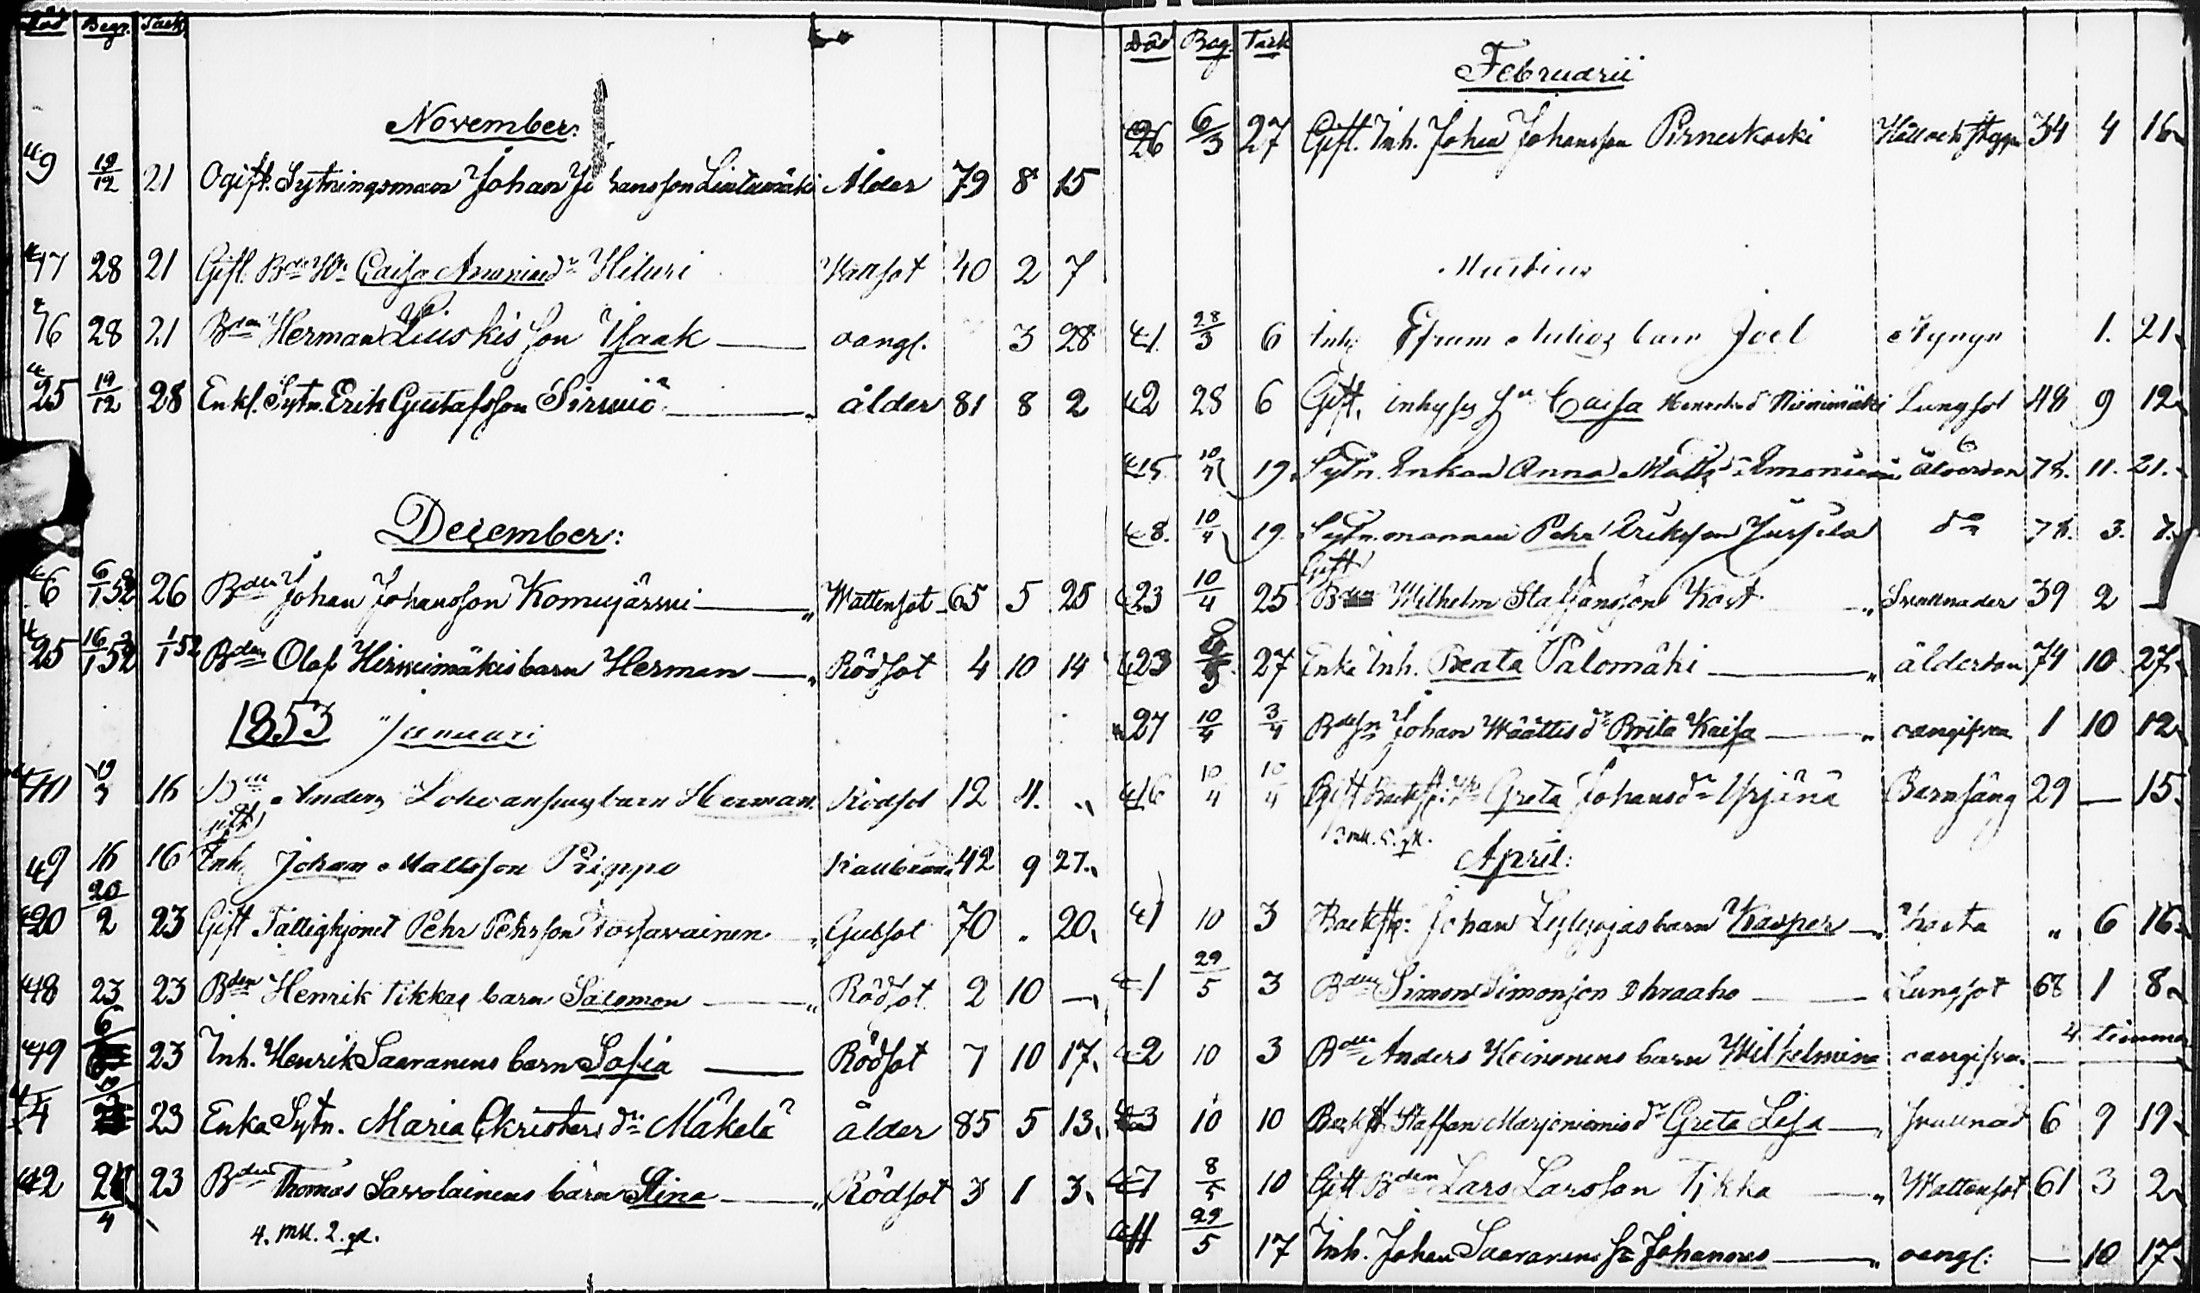 Död Begr. Tack.
November:
9 19/12 21 Ogift. Sytningsman Johan Johansson Lintumäki Ålder 79 8 15
17 28 21 Gift. Bde Hu Caisa Hituri Wattsot 40 2 7
16 28 21 Bden Herman Liuskis son Isaak oangf. 3 28
25 19/12 28 Enkl. Sytn. Erik Gustafsson Sirwiö ålder 81 8 2
December:
6 6/1 52 26 Bden Johan Johansson Komujärwi Wattensot 65 5 25
25 16/1 52 1/1 52 Bden Olof Hirwimäkis barn Herman Rödsot 4 10 14
1853 Januari
16 Anders barn Herman Rödsot 12 4 "
gift
9 16 16 Inh. Johan Mattsson Prippo 42 9 27
20 20/2 23 Gift Fattighjonet Pehr Pehrsson Torsavainen Gulsot 70 " 20
18 23 23 Bden Henrik Tikkas barn Salomon Rödsot 2 10 —
19 6 23 Inh. Henrik Saaranens barn Sofia Rödsot 7 10 17
4 23 Enka Sytn. Maria Christers dr Mäkelä ålder 85 5 13
12 24/4 23 Bden Thomas Savolainens barn Stina Rödsot 3 1 3
4. mk. 2. qk.
Död Beg. Tack
Februarii
26 6/3 27 Gift. Inh. Johan Johansson Pirneskoski Håll och stygn 34 4 16
Martius
1 28/3 6 Inh. Efraim barn Joel 1. 21
2 28 6 Gift. inhyses Caisa Niinimäki Lungsot 48 9 12
15 10/4 19. Sytn. Enkan Anna Matts 78. 11. 21.
8. 10/4 19. Sytn. mannen Pehr Eriksson Jussila do 78. 3. 7.
Gift
23 10/4 25 Bden Wilhelm Staffansson Kast Svullnader 39 2 —
23 27 Enka Inh. Beata Palomäki ålderdom 74 10 27
27 10/4 3/4 Johan Määttis dr Brita Kaisa oangifven 1 10 12
16 10/4 10/4 Gift Greta Johansdr Yrjänä Barnsäng 29 — 15
3 mk. 5. qk.
April:
1 10 3 Backstf: Johan Lylyojas barn Kasper Hosta " 6 16
1 29/5 3 Bden Simon Simonsson Lungsot 68 1 8
2 10 3 Bden Anders Heinonens barn Wilhelmina oangifven 4 timmar
3 10 10 Backst Staffan Marjoniemis dr Greta Lisa svullnad 6 9 19
7 8/5 10 Gift Bden Lars Larsson Tikka Wattensot 61 3 2
11 29/5 17 Inh. Johan Saaranens sn Johannes oangf: — 10 17